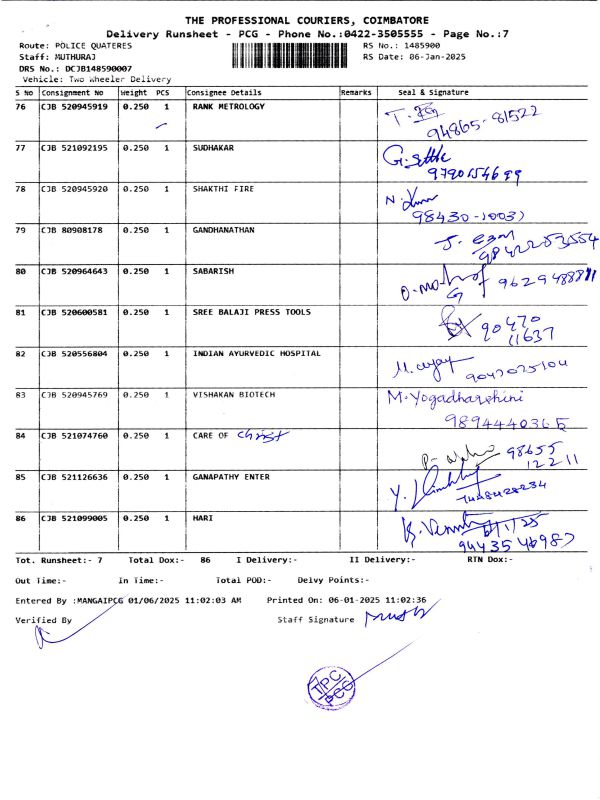 THE PROFESSIONAL COURIERS, COIMBATORE
Delivery Runsheet - PCG - Phone No.:0422-3505555 - Page No.:7
Route: POLICE QUATERES RS No.: 1485900
Staff: MUTHURAJ RS Date: 06-Jan-2025
DRS No.: DCJB148590007
Vehicle: Two Wheeler Delivery
S No Consignment No Weight PCS Consignee Details Remarks Seal & Signature
76 CJB 520945919 0.250 1 RANK METROLOGY
94865-81522
77 CJB 521092195 0.250 1 SUDHAKAR
9790154699
78 CJB 520945920 0.250 1 SHAKTHI FIRE
98430-10031
79 CJB 80908178 0.250 1 GANDHANATHAN
9842253554
80 CJB 520964643 0.250 1 SABARISH
81 CJB 520600581 0.250 1 SREE BALAJI PRESS TOOLS
90470
11637
82 CJB 520556804 0.250 1 INDIAN AYURVEDIC HOSPITAL
9047025104
83 CJB 520945769 0.250 1 VISHAKAN BIOTECH M.Yogadharshini
9894440365
84 CJB 521074760 0.250 1 CARE OF Christ
98655
12211
85 CJB 521126636 0.250 1 GANAPATHY ENTER
86 CJB 521099005 0.250 1 HARI
6/1/25
Tot. Runsheet:- 7 Total Dox:- 86 I Delivery:- II Delivery:- RTN Dox:-
Out Time:- In Time:- Total POD:- Delvy Points:-
Entered By :MANGAIPCG 01/06/2025 11:02:03 AM Printed On: 06-01-2025 11:02:36
Verified By Staff Signature
TPC
PCG